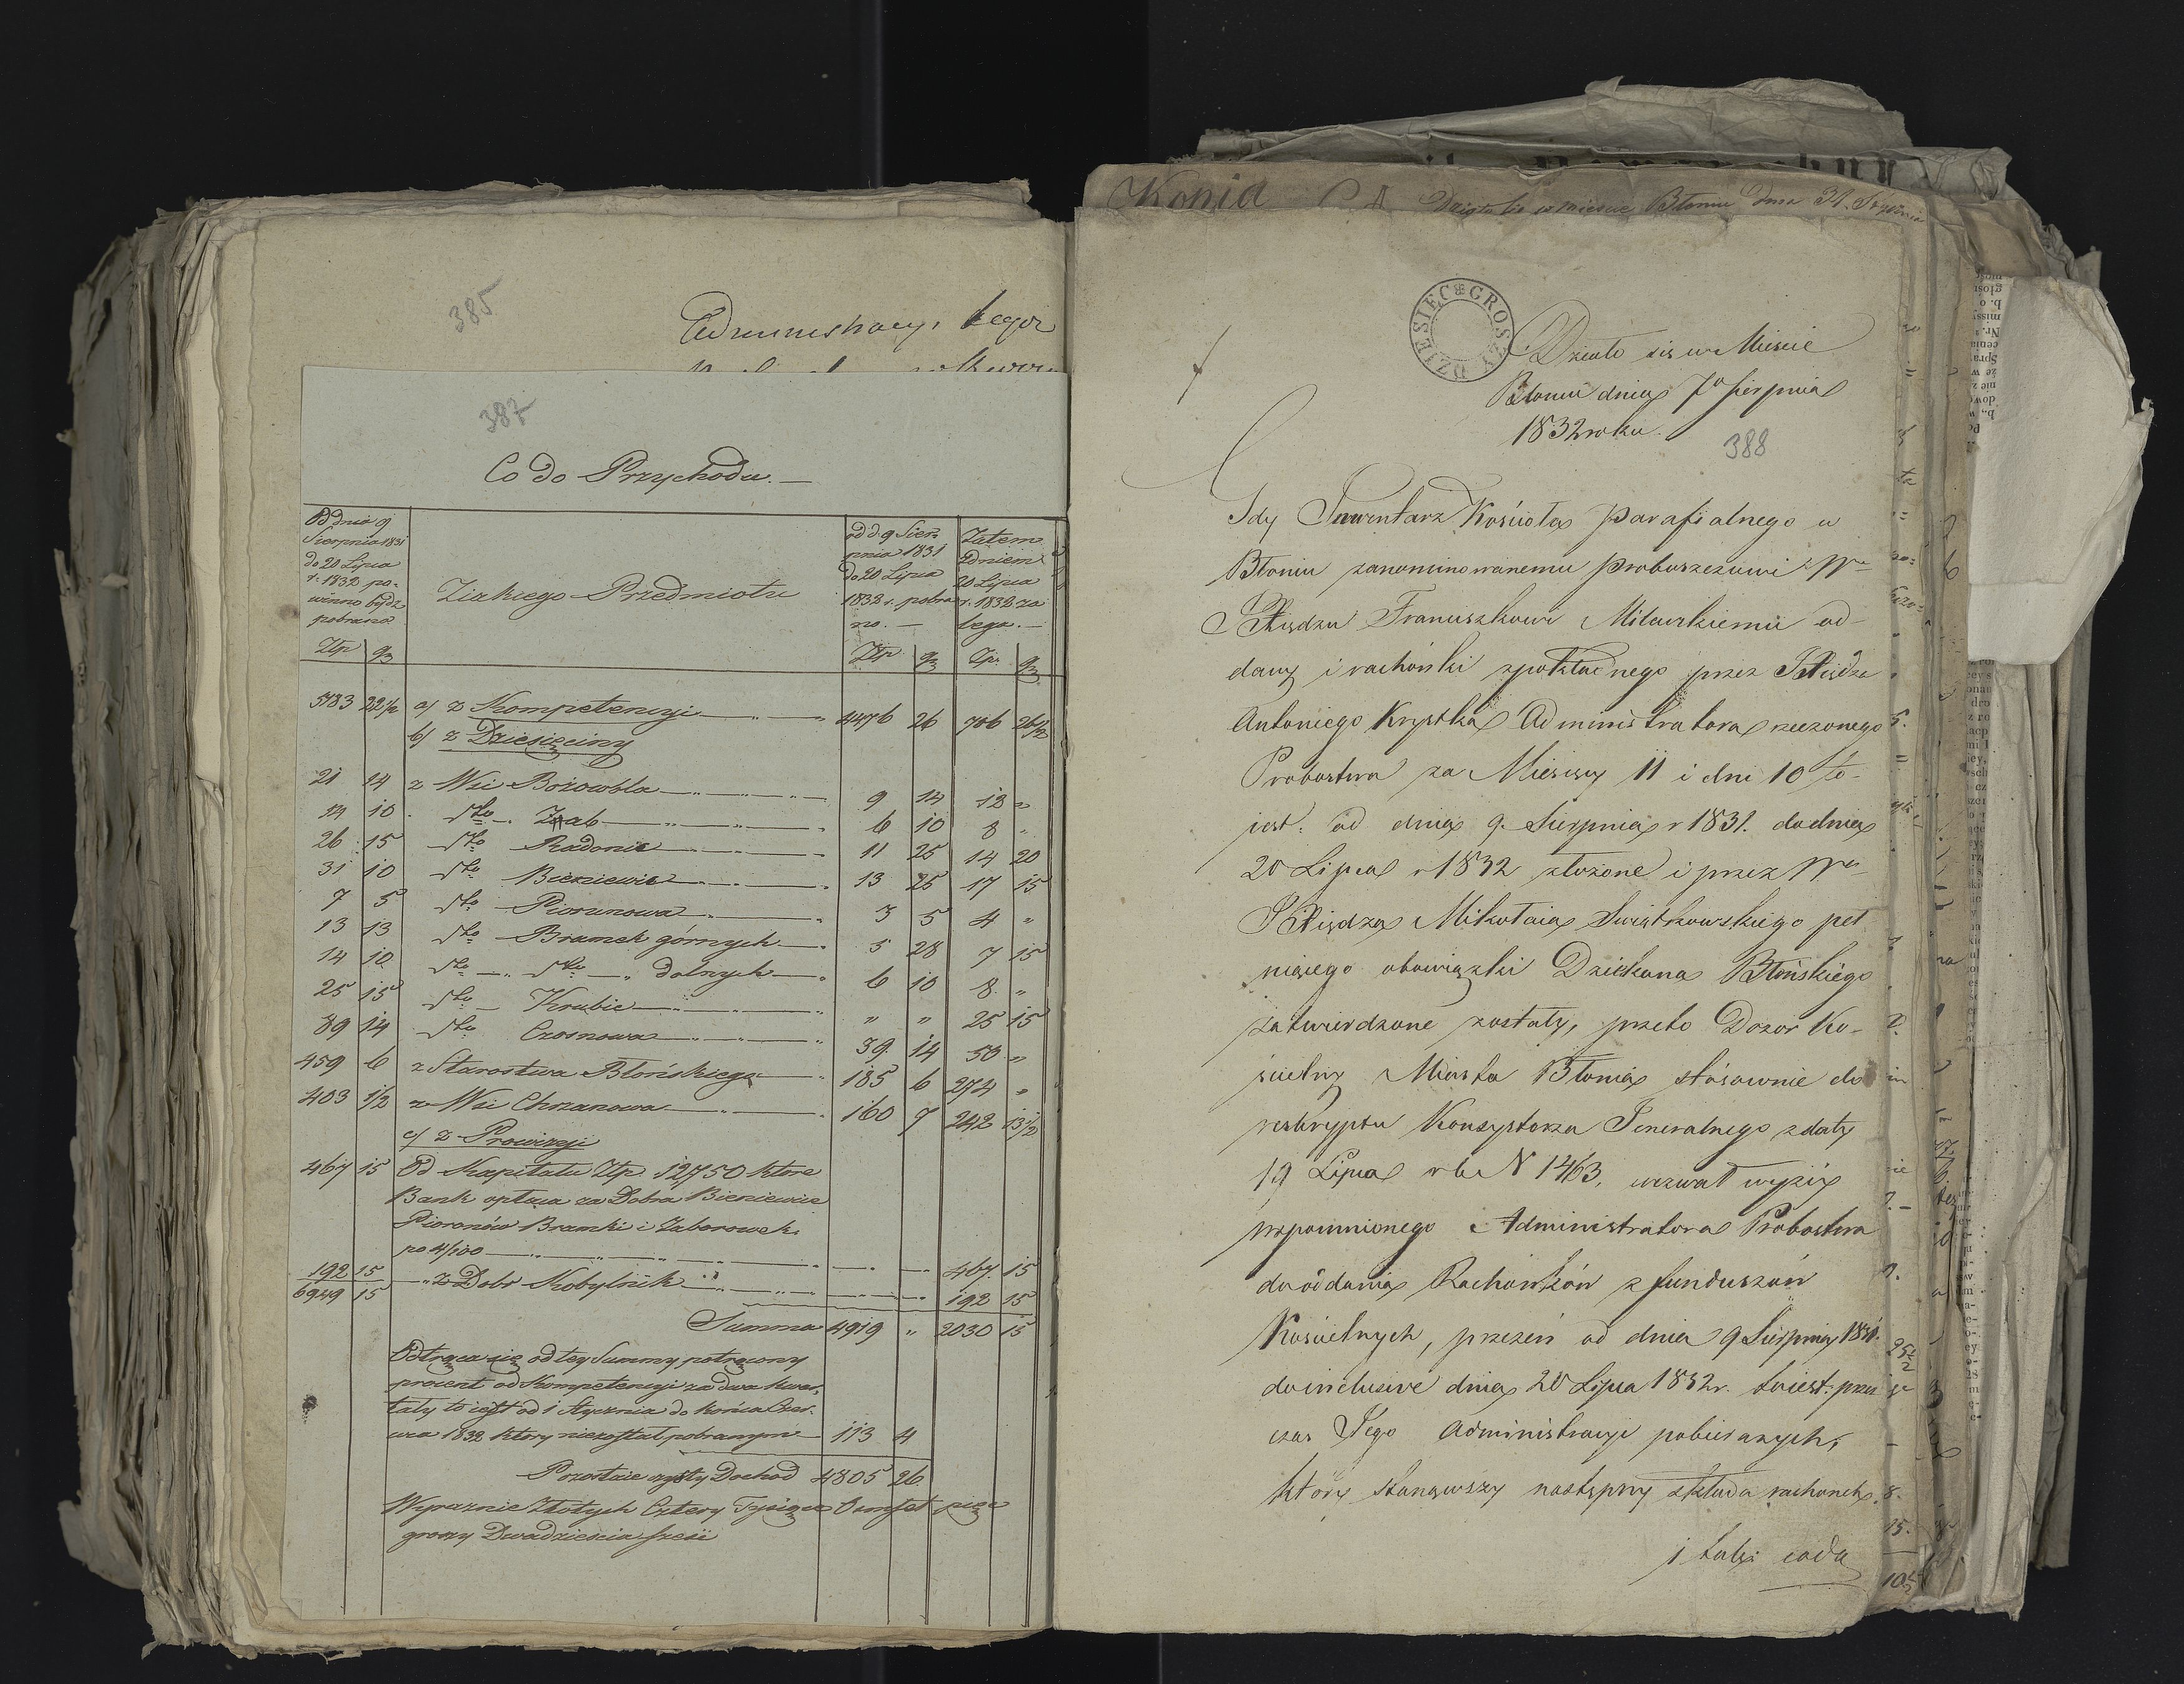 385
Administracyi tegoż
387
Co do Przychodu. —
Od dnia 9 Sierpnia 1831 do 20 Lipca r. 1832 powinno bydź pobrano | Z iakiego Przedmiotu | od d. 9 Sierpnia 1831 do 20 Lipca 1832 r. pobrano. — | Zatem z dniem 20 Lipca r. 1832 zalega. —
Złp | gr | Złp. | gr | Zp. | gr
5183 22½ a/ z Kompetencyi 4476 26 706 26½
b/ z Dziesięciny
21 14 z Wsi Bożowola 9 14 12 "
14 10 dto Żab 6 10 8 "
26 15 dto Radonic 11 25 14 20
31 10 dto Bieniewic 13 25 17 15
7 5 dto Piorunowa 3 5 4 "
13 13 dto Bramek górnych 5 28 7 15
14 10 dto dto dolnych 6 10 8 "
25 15 dto Krubic " " 25 15
89 14 dto Czosnowa 39 14 50 "
459 6 z Starostwa Błońskiego 185 6 274 "
403 ½ z Wsi Chrzanowa 160 7 242 13½
c/ z Prowizyi
467 15 Od Kapitału Złp 12750 które
Bank opłaca za Dobra Bieniewice
Pioronów Bramki i Zaborowek
po 4/100 467 15
192 15 " z Dobr Kobylnik 192 15
6949 15
Summa 4919 " 2030 15
Odtrąca się od tey Summy potrącony
procent od Kompetencyi za dwa kwar-
tały to iest od 1 Stycznia do końca Czer-
wca 1832 który niezostał pobranym 113 4
Pozostaie czysty Dochod 4805 26
Wyraznie Złotych Cztery Tysiące Osmset pięć
groszy Dwadzieścia sześć
Kopia
Działo się w mieście Błoniu dnia 31 Stycznia
DZIESIĘC GROSZY
Działo się w Mieście
Błoniu dnia 7o Sierpnia
1832 roku.
388
Gdy Inwentarz Kościoła Parafialnego w
Błoniu zanominowanemu Proboszczowi Wu
JXiędzu Franciszkowi Milewskiemu od-
dany i rachónki zpokładnego przez JXiędza
Antoniego Krystka Administratora rzeczonego
Probostwa za Miesięcy 11 i dni 10 to-
jest. od dnia 9. Sierpnia r 1831. do dnia
20 Lipca r 1832 złożone i przez Wo
JXiędza Mikołaia Swiątkowskiego peł
niącego obowiązki Dziekana Błońskiego
zatwierdzone zostały, przeto Dozor Ko-
ścielny Miasta Błonia stósownie do
reskryptu Konsystorza Generalnego z daty
19 Lipca r b N 1463, wezwał wyżéj
wspomnionego Administratora Probostwa
do oddania Rachonków z funduszów
Kościelnych, przezeń od dnia 9 Sierpnia 1831.
do inclusive dnia 20 Lipca 1832 r. to iest: przez
czas Jego Administracyi pobieranych,
który stanąwszy nastepny składa rachonek,
i tak: co do